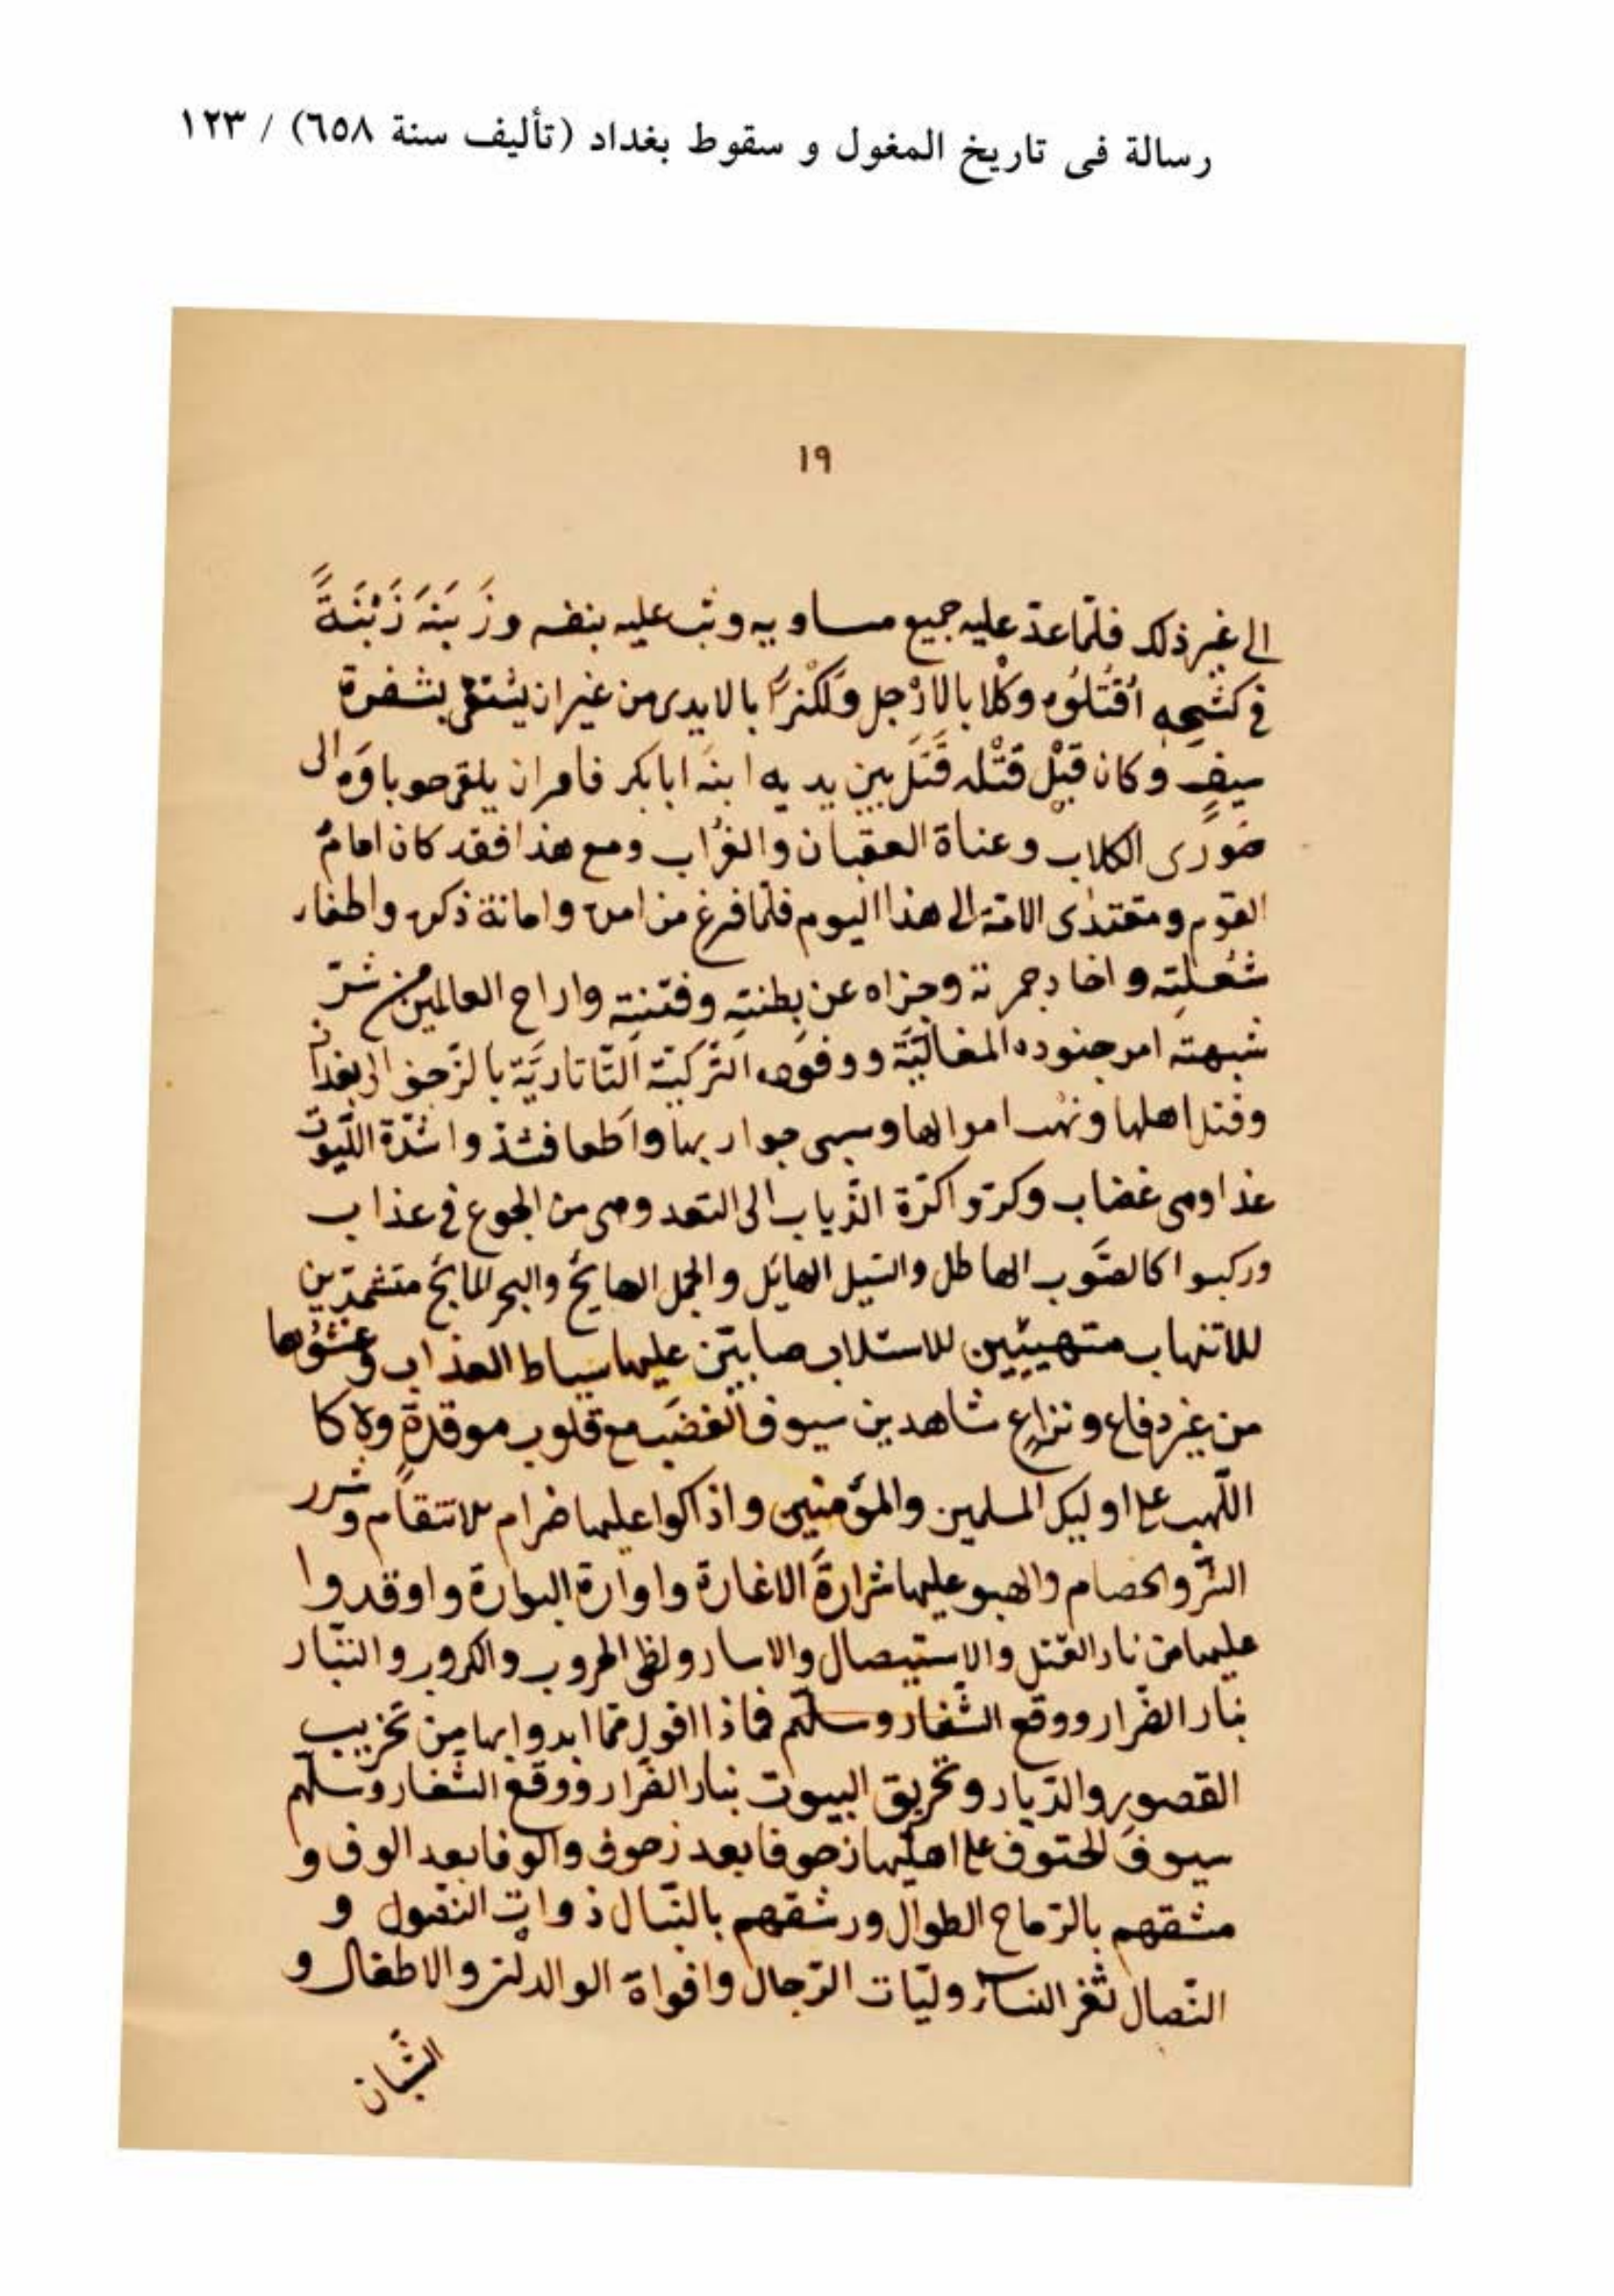 رسالة فى تاريخ المغول و سقوط بغداد (تأليف سنة ٦٥٨) / ١٢٣
١٩
الى غير ذلك فلمّا عدّ عليه جميع مساويه وثب عليه بنفسه وزَبَنَهَ زَبْنَةً
فى كشحِهِ اُقْتُلُوْه وكْلا بالاَرْجل وَلَكْزًا بالايدى من غير ان يستقى بشفرة
سيفٍ وكان قَبْل قَتْله قَتَل بين يديه ابنَه ابابكر فامر ان يلقى حوباوَه الى
ضَوٰرى الكلاب وعناة العقبان والغُراب ومع هذا فقد كان امامُ
القوم ومقتدٰى الامّة الى هذا اليوم فلمّا فرغ من امره وامانة ذكره واطفار
شُعلتِه واخاد جمرته وجزاه عن بطنتِه وفتنته واراح العالمين من شرّ
شبهته امر جنوده المغاليّة ووفوده التّركيّة التّاتاريّة بالزّحف الى بغداد
وقتل اهلها ونهب اموالها وسبى جواريها واَطعا فشذّوا شدّة اللّيوث
غذا وهى غضاب وكرّوا كرّة الذّياب الى النقد وهى من الجوع فى عذاب
وركبوا كالصَّوب الهاطل والسّيل الهايل والجمل الهايج والبحر المايج متشمّرين
للانتهاب متهيّئين للاستلاب صابّين عليها سياط العذاب وعشوها
من غير دفاع ونزاعٍ شاهدين سيوف الغضب مع قلوب موقدة ولا كا
اللّهيب على اوليك المسلمين والمؤمنين واذاكوا عليها ضرام للانتقام وشرر
الشّر والخصام والهبو عليها شرارةَ الاغارة واوارة البوارة واوقدوا
عليها من نار القتل والاستيصال والاسار ولظى الحروب والكروب والتبّار
بنار الضّرار ووقع الشّفار وسلّهم فماذا اقول ممّا ابدوا بها من تخريب
القصور والدّيار وتحريق البيوت بنار الضّرار ووقع الشّفار وسلّهم
سيوفَ الحتوف على اهليها زحوفا بعد زحوف والوفا بعد الوف و
مشقهم بالرّماح الطوال ورشقهم بالنّبال ذوات النّصول و
النّصال ثغر النساء وليّات الرّجال وافواة الوالدان والاطفال و
الشّبان